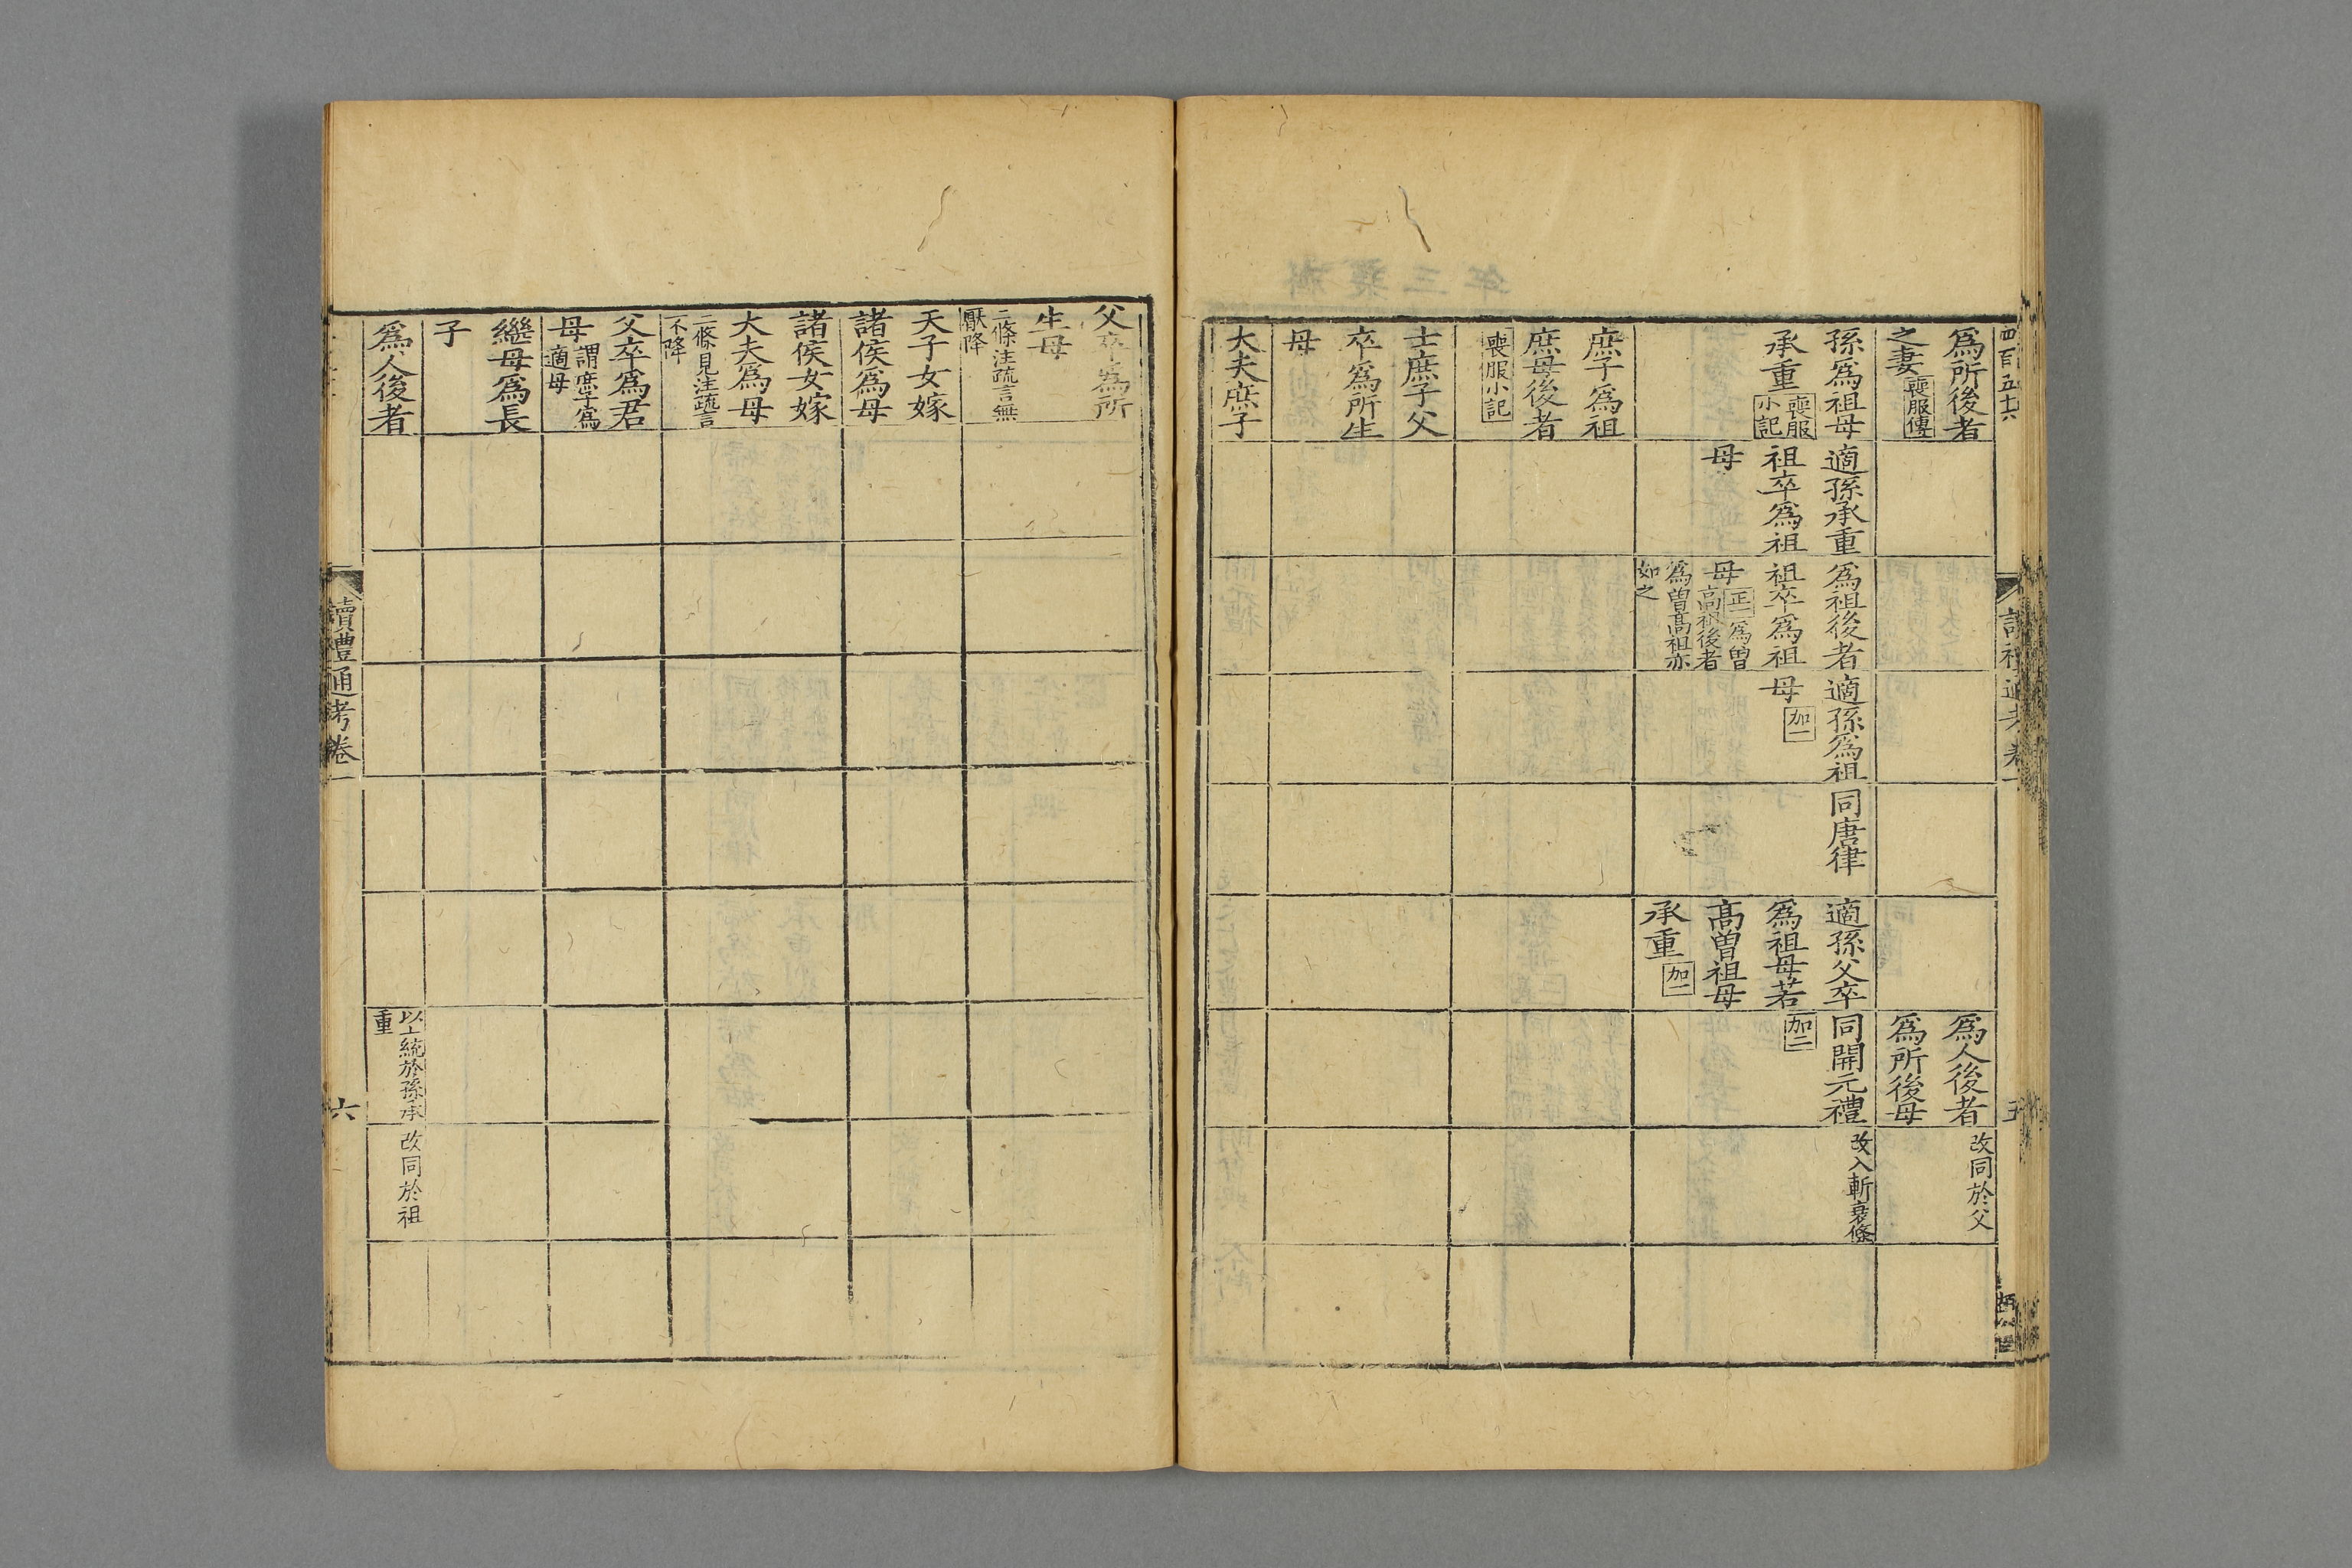 四百五十六
讀禮通考卷一
五
爲所後者
之妻喪服傳
爲人後者
爲所後母
改同於父
孫爲祖母
承重喪服
小記
適孫承重
祖卒爲祖
母
爲祖後者
祖卒爲祖
母正二爲曾
高祖後者
爲曾高祖亦
如之
適孫爲祖
母加一
同唐律
適孫父卒
爲祖母若
高曾祖母
承重加一
同開元禮
加二
改入斬衰條
庶子爲祖
庶母後者
喪服小記
士庶子父
卒爲所生
母
大夫庶子
父卒爲所
生母
二條注疏言無
厭降
天子女嫁
諸侯爲母
諸侯女嫁
大夫爲母
二條見注疏言
不降
父卒爲君
母謂庶子爲
適母
繼母爲長
子
爲人後者
以上統於孫承
重
改同於祖
讀禮通考卷一
六